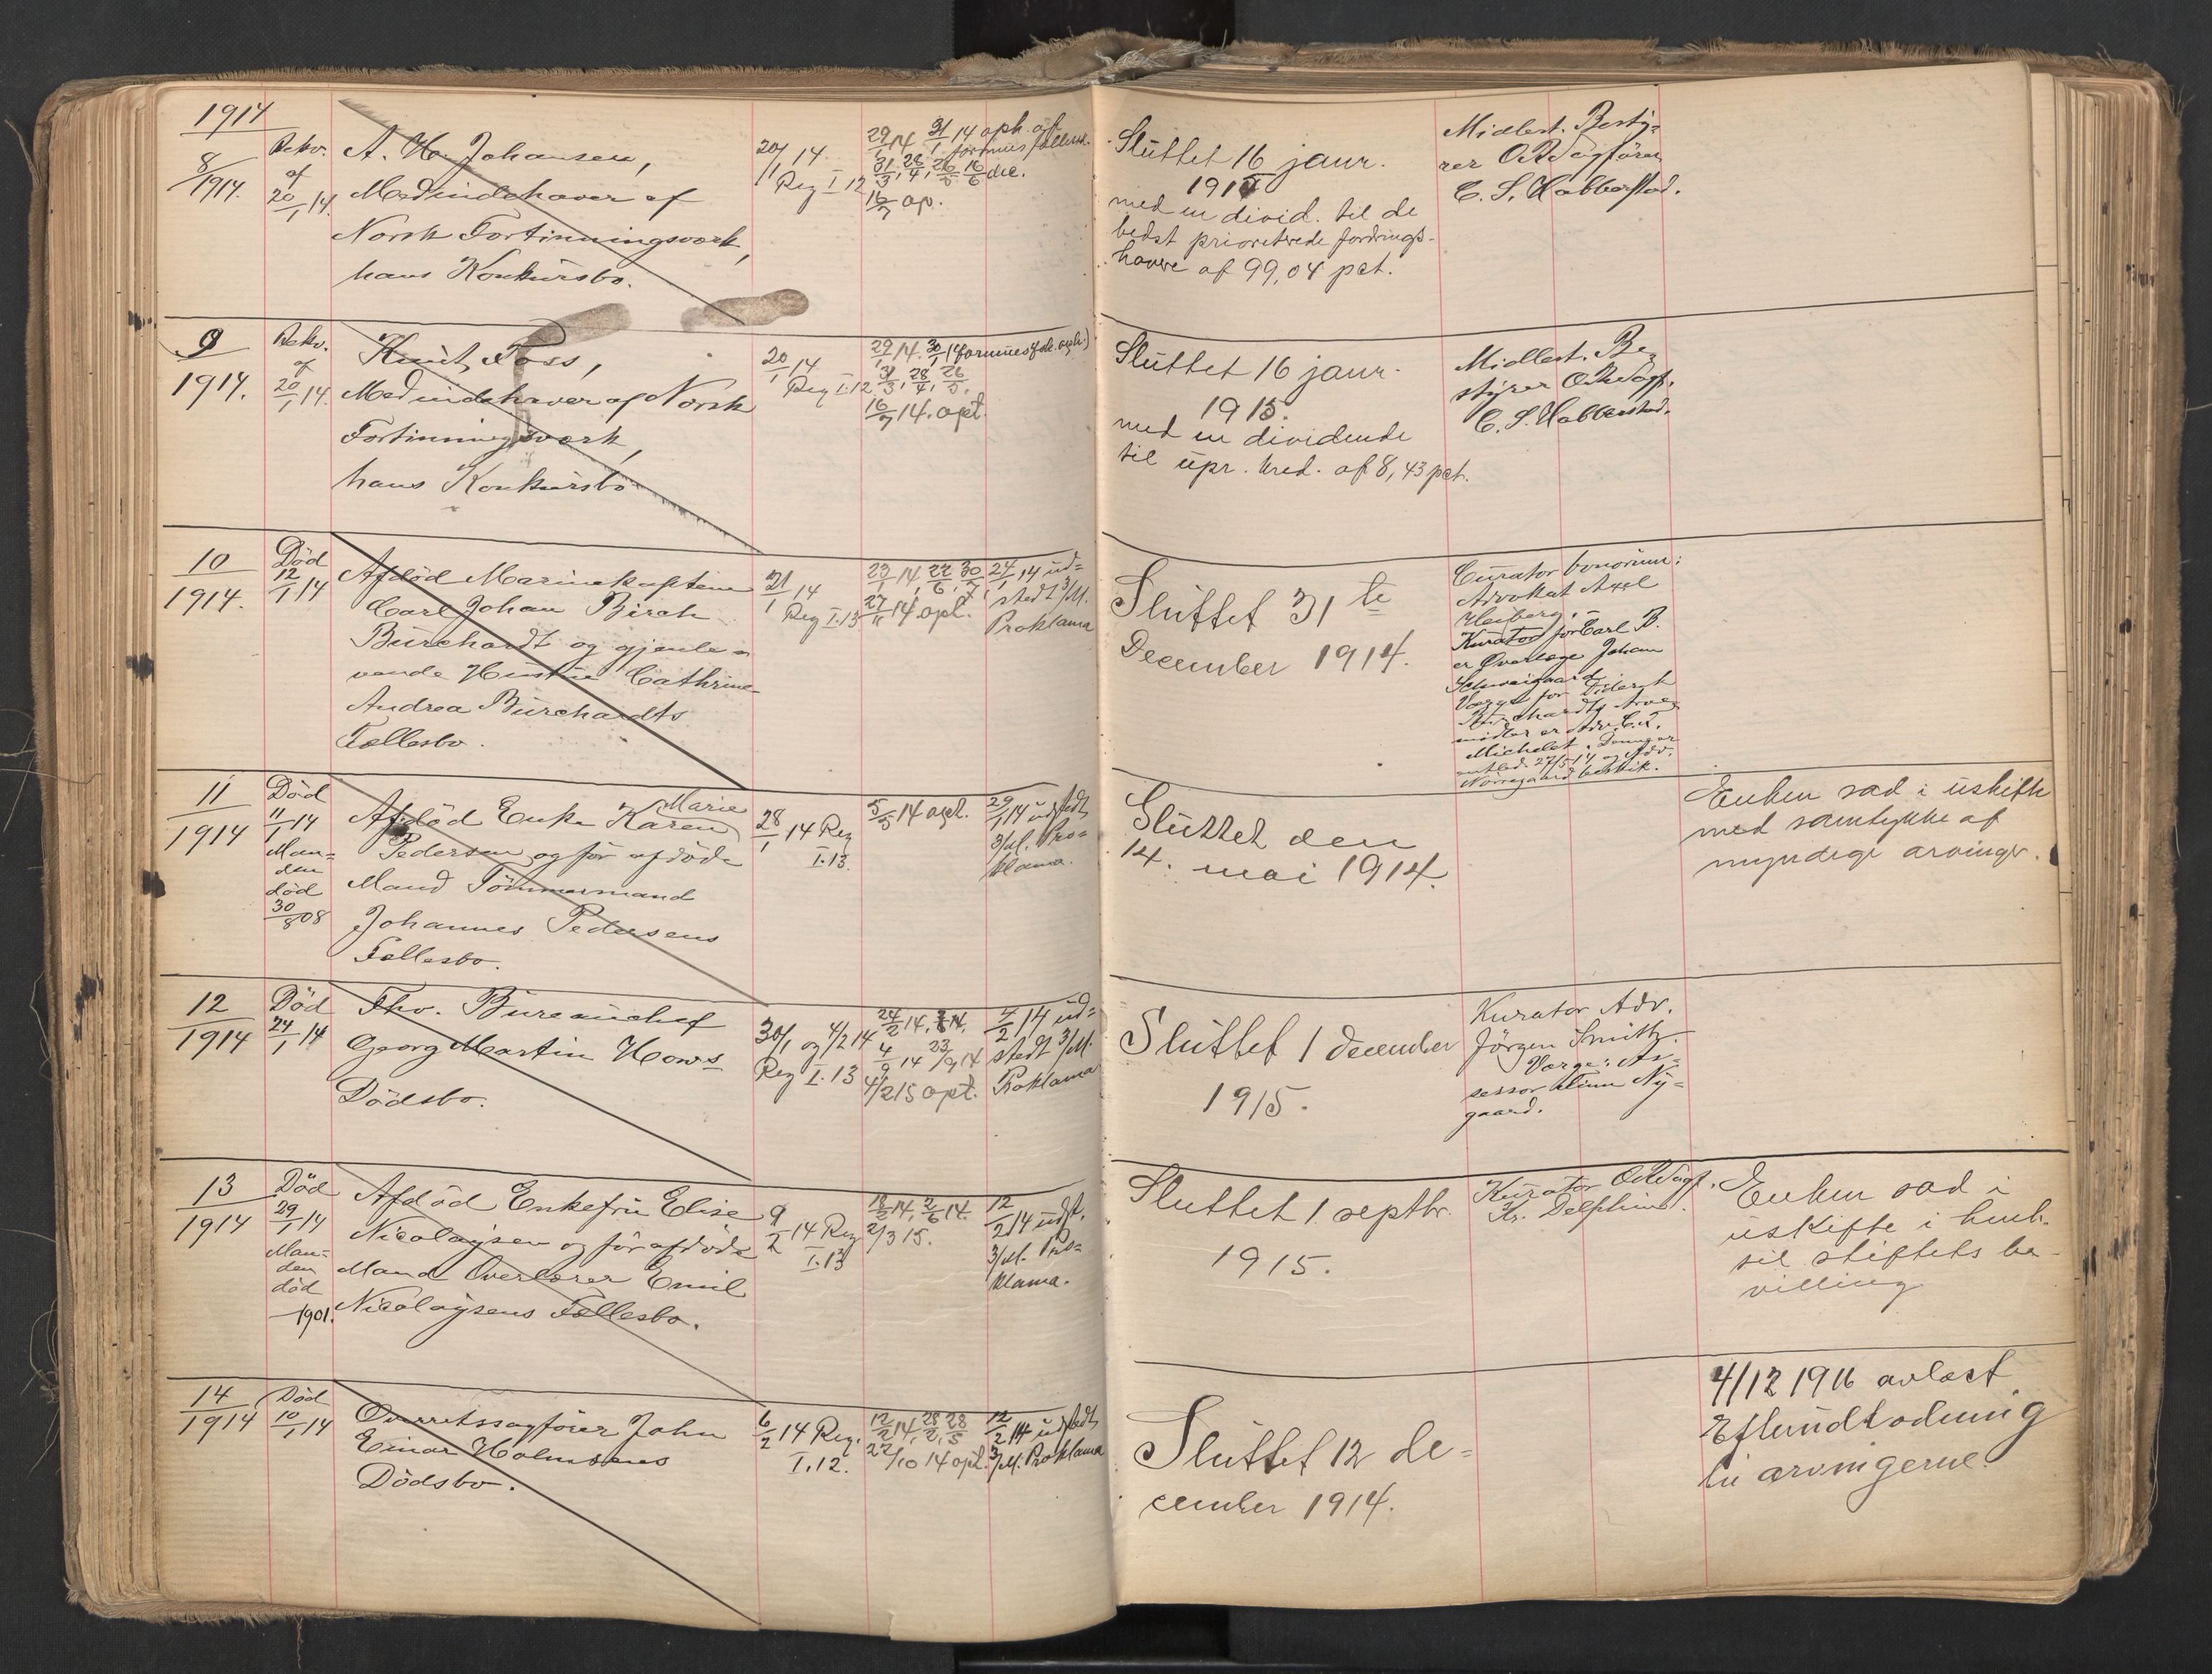 1914
8/1914.
Rekv. af 20/1 14.
A. H. Johansen,
Medindehaver af
Norsk Fortinningsverk,
hans Konkursbo.
20/1 14.
Reg I 12
29/1 14 31/1 14 oph. af
formuesfællessk.
31/3, 28/4, 26/5 16/6 die.
16/7 op.
Sluttet 16 janr.
1915
med en divid. til de
bedst prioriterede fordrings-
havere af 99,04 pct.
Midlert. Besty-
rer O.R.Sagfører
C. S. Habberstad.
9
1914.
Rekv. af 20/1 14.
Knut Foss,
Medindehaver af Norsk
Fortinningsverk,
hans Konkursbo
20/1 14
Reg I.12
29/1 14. 30/1 14 formuesf. de. oph.)
31/3, 28/4, 26/5.
16/7 14. opt.
Sluttet 16 janr.
1915.
med en dividende
til upr. kred. af 8,43 pct.
Midlert. Be-
styrer O.R.Sagf.
C. S. Habberstad.
10
1914.
Död
12/1 14
Afdöd Marinekaptein
Carl Johan Birch
Burchardt og gjenle-
vende Hustru Cathrine
Andrea Burchardts
Fællesbo.
21/1 14
Reg I.13
23/1 14, 22/6, 30/7,
27/11 14 opt.
24/1 14 ud-
stedt 3/M.
Proklama
Sluttet 31te
December 1914.
Curator bonorum:
Advokat Axel
Heiberg.
Kurator for Carl B.
er Overlæge Johan
Schweigaard.
Værge for Diderik
Burchardts Arve-
midler er Adv. C. F.
Michelet. Denne er
entled. 27/5 14 og Adv.
Nörregaard beskik.
11
1914
Död
11/1 14
Man-
den
död
30/8 08
Marie
Afdöd Enke Karen
Pedersen og för afdöde
Mand Tömmermand
Johannes Pedersens
Fællesbo.
28/1 14 Reg
I.13.
5/5 14 opt.
29/1 14 udstedt
3/M. Pro-
klama.
Sluttet den
14. mai 1914.
Enken sad i uskifte
med samtykke af
myndige arvinger.
12
1914
Död
24/1 14
Fhv. Bureauchef
Georg Martin Hows
Dödsbo.
30/1 og 4/2 14
Reg I.13
24/2 14,
4/9 14 23/9 14
4/2 15 opt.
7/2 14 ud-
stedt 3/M.
Proklama
Sluttet 1 december
1915.
Kurator Adv.
Jörgen Smith.
Værge: As-
sessor Ny-
gaard.
13
1914
Död
29/1 14
Man-
den
död
1901.
Afdöd Enkefru Elise
Nicolaysen og för afdöde
Mand Overlærer Emil
Nicolaysens Fællesbo.
9/2 14 Reg
I.13
18/5 14, 2/6 14.
2/3 15.
12/2 14 udst.
3/M. Pro-
klama.
Sluttet 1. septbr.
1915.
Kurator O.R.Sagf.
Kr. Delphin.
Enken sad i
uskifte i henh.
til stiftets be-
villing
14
1914
Död
10/1 14
Overretssagförer John
Einar Holmsens
Dödsbo.
6/2 14 Reg.
I.12.
12/2 14, 28/2, 28/5
22/10 14 opt.
12/2 14 udstedt
3/M. Proklama
Sluttet 12 de-
cember 1914.
4/12 1916 avlæst
til arvingerne.